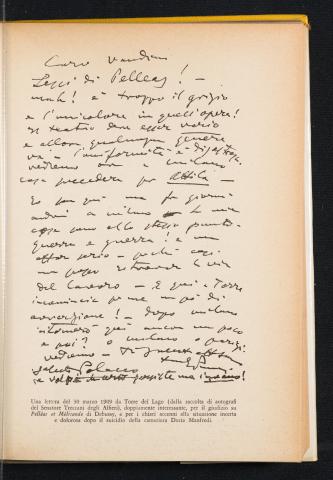 Caro Vandini
Lessi di Pelleas! —
mah! è troppo il grigio
e l'unicolore in quell'opera!
Il teatro deve esser vario
e allora qualunque genere
va — l'uniformità è disastrosa.
vedremo ora a milano
cosa succederà per Attila —
Io son qui ma fra giorni
andrò a milano — le mie
cose sono allo stesso punto —
guerra e guerra! è un
affar serio — perché così
non posso ritrovare la via
del lavoro — E qui a Torre
incomincia per me un po' di
avversione! — dopo milano
ritornerò qui ancora un poco
e poi? o milano o parigi
vedremo —
saluta Polacco
Una lettera del 30 marzo 1909 da Torre del Lago (dalla raccolta di autografi
del Senatore Treccani degli Alfieri), doppiamente interessante, per il giudizio su
Pelléas et Mélisande di Debussy, e per i chiari accenni alla situazione incerta
e dolorosa dopo il suicidio della cameriera Doria Manfredi.